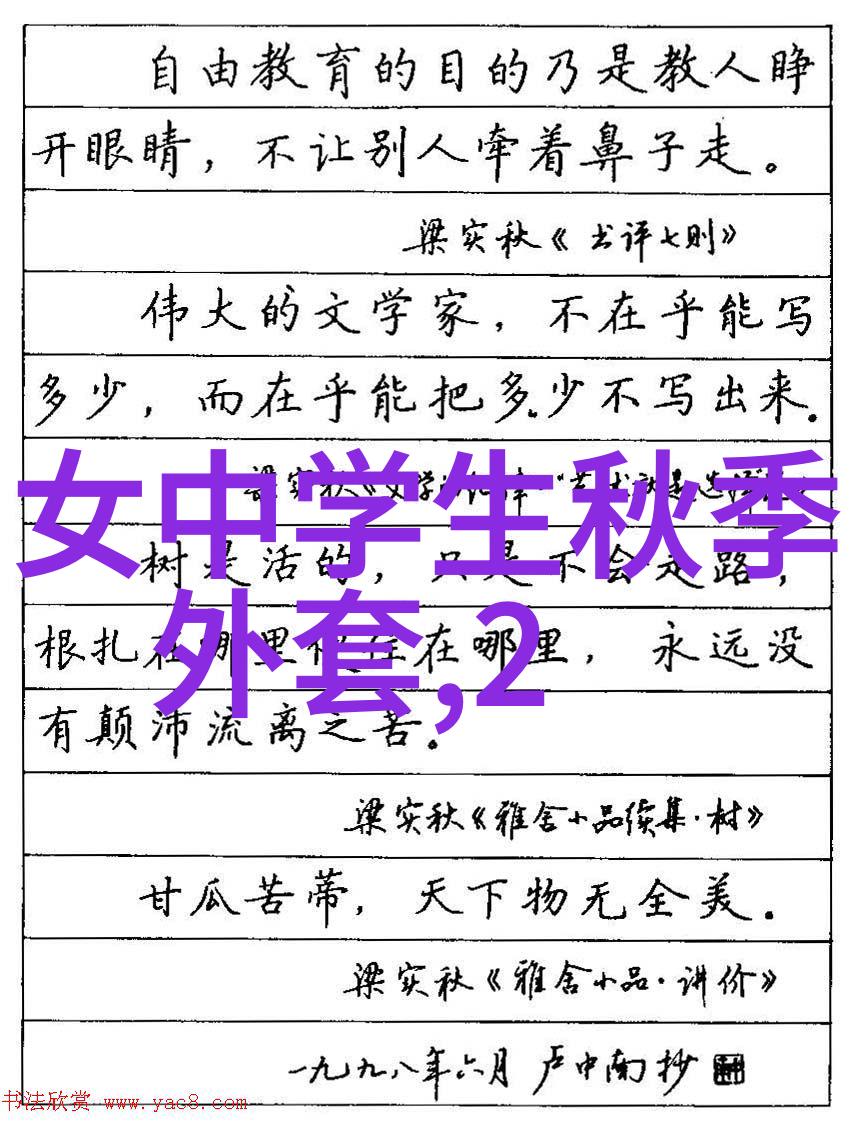 自由教育的目的乃是教人睁
开眼睛，不让别人牵着鼻子走。
梁实秋《书评七则》
伟大的文学家，不在乎能写
多少，而在乎能把多少不写出来。
梁实秋《文学
女中学生秋季
树是活的，只是不会走路，
根扎在哪里便住在哪里，永远没
外套,2
有颠沛流离之苦。
梁实秋《雅舍小品续集·树》
甘瓜苦蒂，天下物无全美。
梁实秋《雅舍小品·讲价》
一九九八年六月 卢中南抄
书法欣赏 www.yac8.com